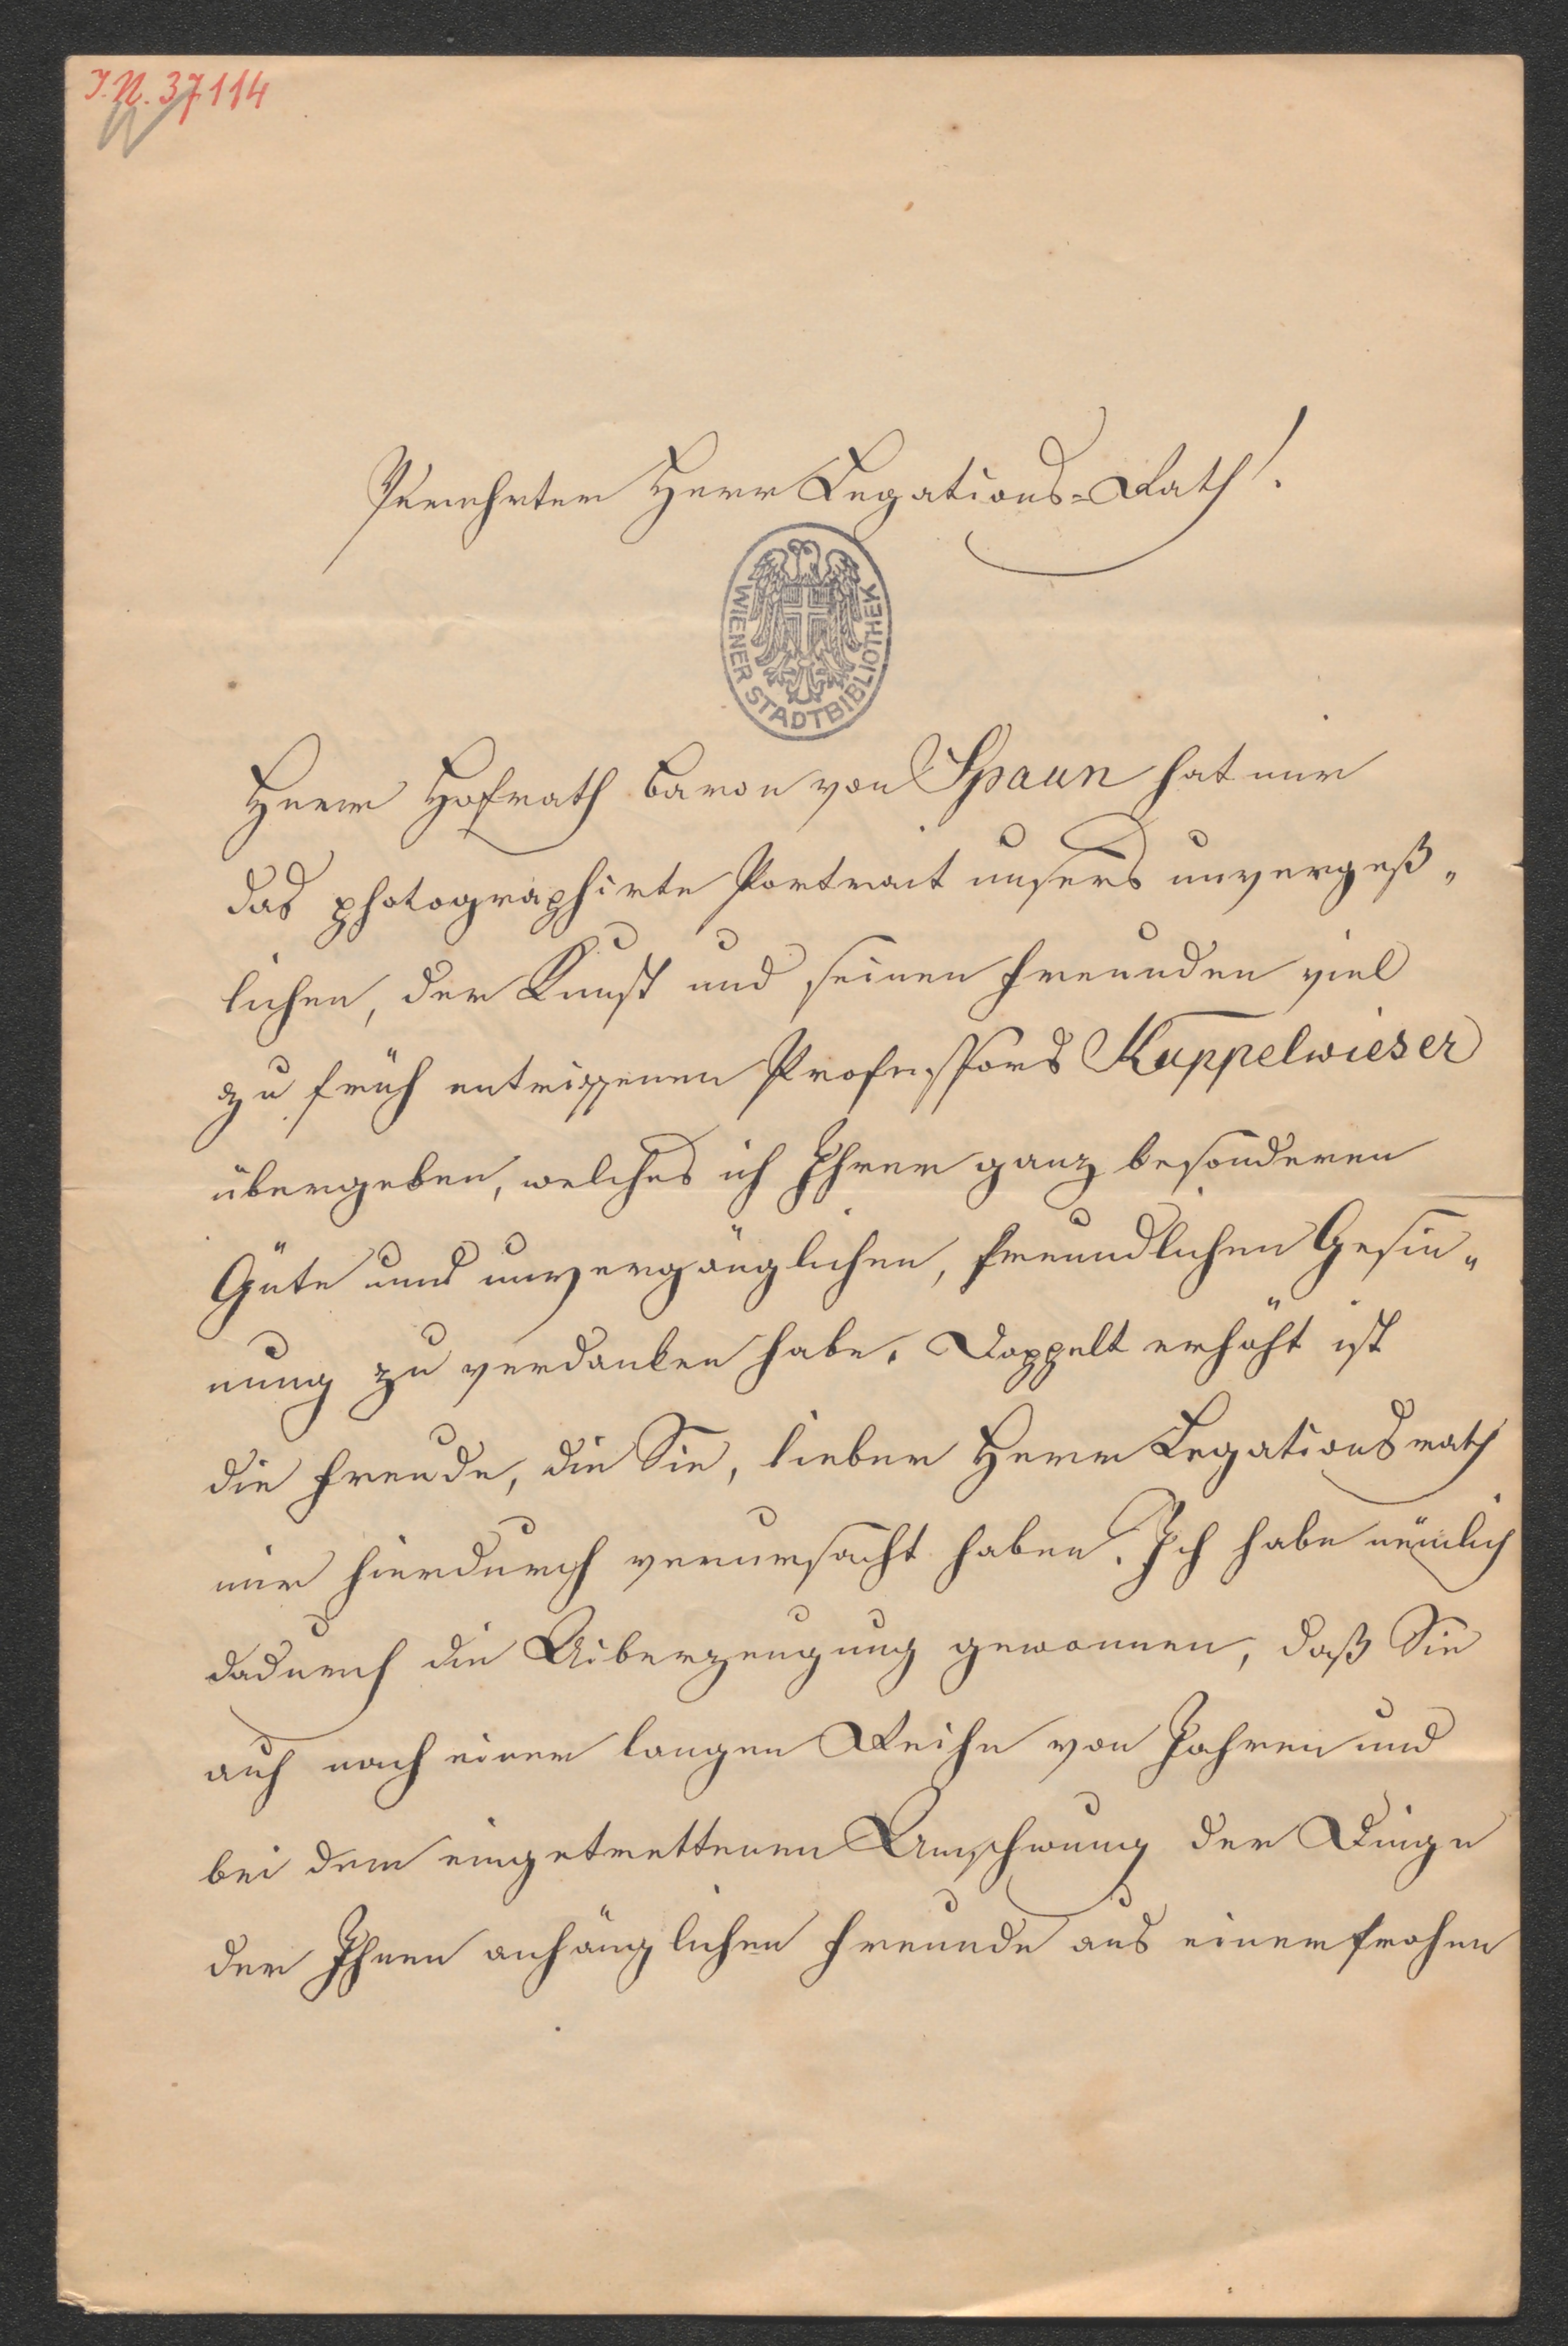 I.N. 37114
Verehrter Herr Legations-Rath!
WIENER STADTBIBLIOTHEK
Herr Hofrath Baron von Spaun hat mir
das photographirte Portrait unsers unvergeß„
lichen, der Kunst und seinen Freunden viel
zu früh entrissenen Professors Kuppelwieser
übergeben, welches ich Ihrer ganz besonderen
Güte und unvergänglichen, freundlichen Gesin„
nung zu verdanken habe. Doppelt erhöht ist
die Freude, die Sie, lieber Herr Legationsrath
mir hierdurch verursacht haben. Ich habe nämlich
dadurch die Uiberzeugung gewonnen, daß Sie
auch nach einer langen Reihe von Jahren und
bei dem eingetrettenen Umschwung der Dinge
der Ihnen anhänglichen Freunde aus einer frohen